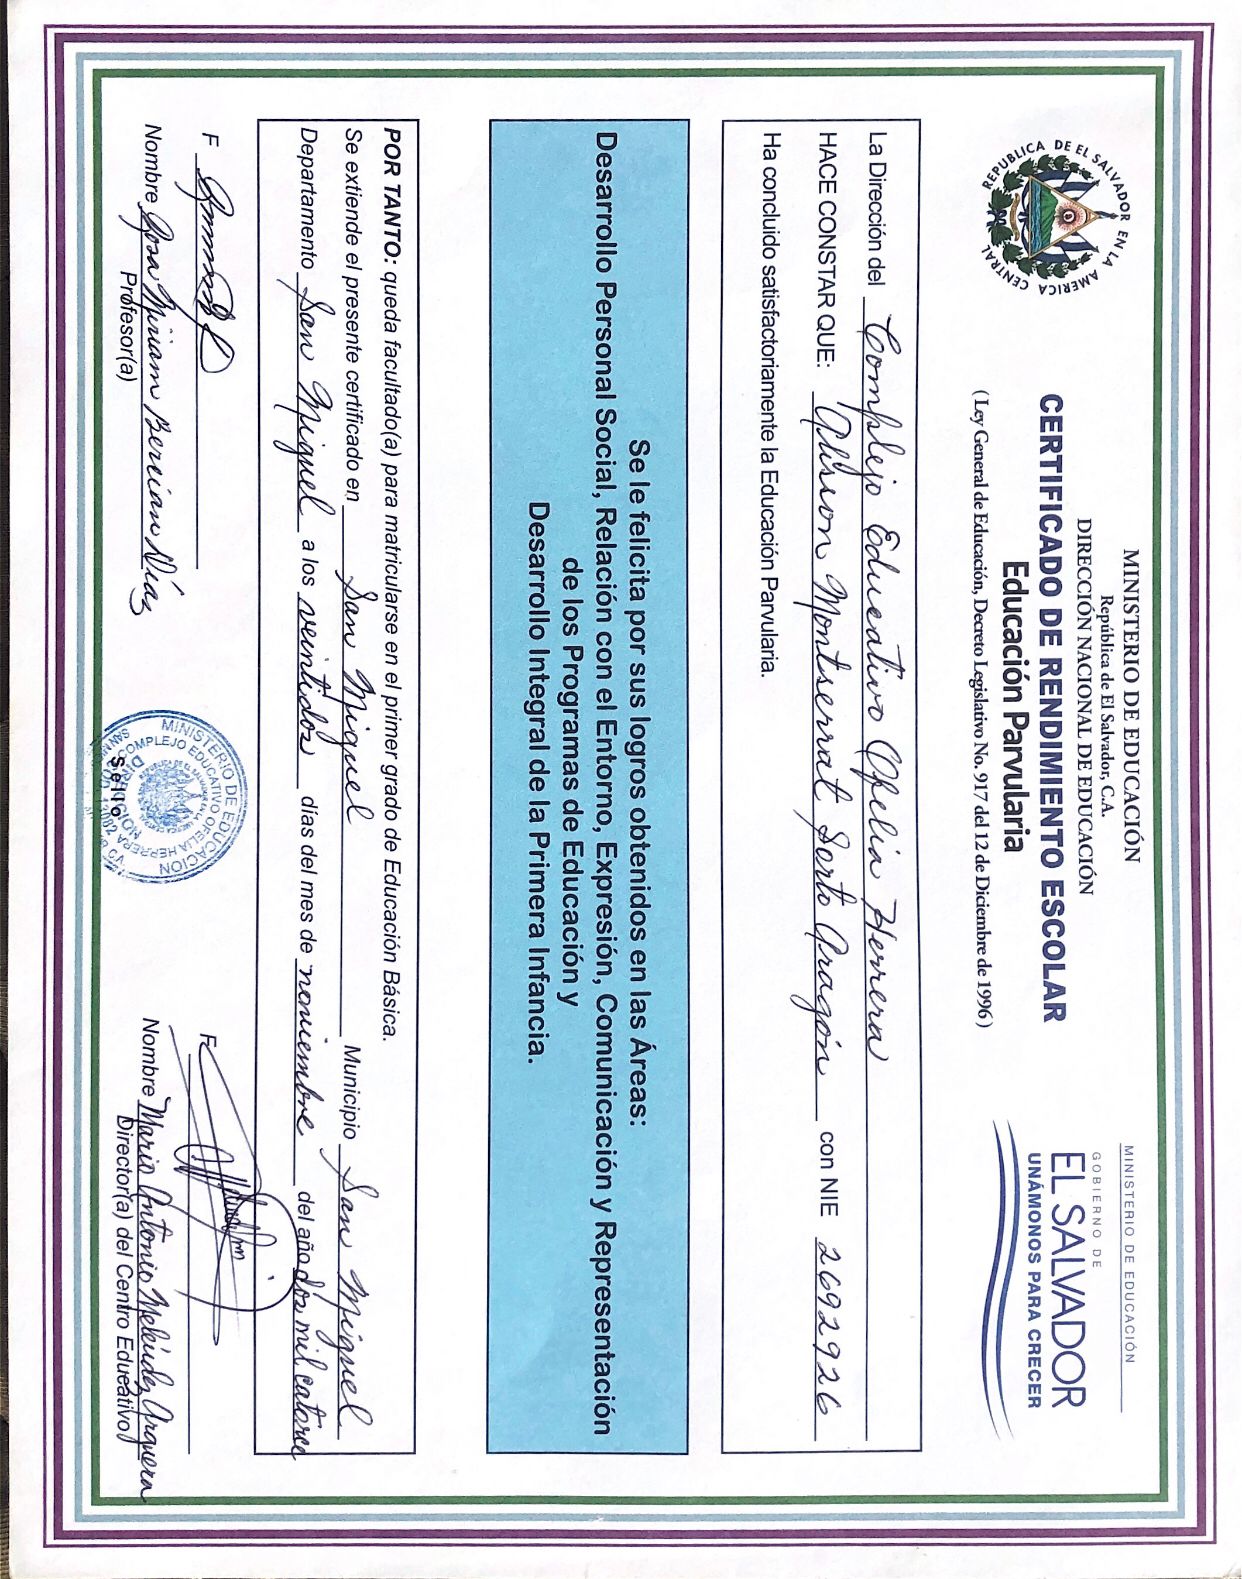 REPUBLICA DE EL SALVADOR EN LA AMERICA CENTRAL
MINISTERIO DE EDUCACIÓN
República de El Salvador, C.A.
DIRECCIÓN NACIONAL DE EDUCACIÓN
CERTIFICADO DE RENDIMIENTO ESCOLAR
Educación Parvularia
( Ley General de Educación, Decreto Legislativo No. 917 del 12 de Diciembre de 1996)
MINISTERIO DE EDUCACIÓN
GOBIERNO DE
EL SALVADOR
UNÁMONOS PARA CRECER
La Dirección del Complejo Educativo Ofelia Herrera
HACE CONSTAR QUE: Glisson Montserrat Sorto Aragón con NIE 2692926
Ha concluido satisfactoriamente la Educación Parvularia.
Se le felicita por sus logros obtenidos en las Áreas:
Desarrollo Personal Social, Relación con el Entorno, Expresión, Comunicación y Representación
de los Programas de Educación y
Desarrollo Integral de la Primera Infancia.
POR TANTO: queda facultado(a) para matricularse en el primer grado de Educación Básica.
Se extiende el presente certificado en San Miguel Municipio San Miguel
Departamento San Miguel a los veintidos días del mes de noviembre del año dos mil catorce
F
F
Nombre Rosa Miriam Bercián Díaz
Profesor(a)
MINISTERIO DE EDUCACION
COMPLEJO EDUCATIVO OFELIA HERRERA
DIRECCION
Sello
Nombre Mario Antonio Meléndez Arguera
Director(a) del Centro Edueativo